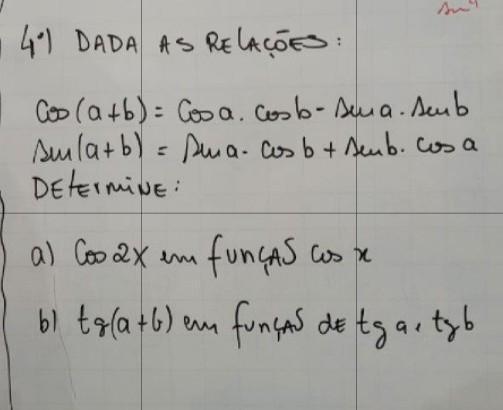 4º) DADA AS RELAÇÕES:
Cos(a+b) = Cos a. cos b - Sen a. Sen b
Sen(a+b) = Sen a. cos b + Sen b. cos a
DETERMINE:
a) Cos 2X em FUNÇAS cos x
b) tg(a+b) em FUNÇAS dE tg a, tg b